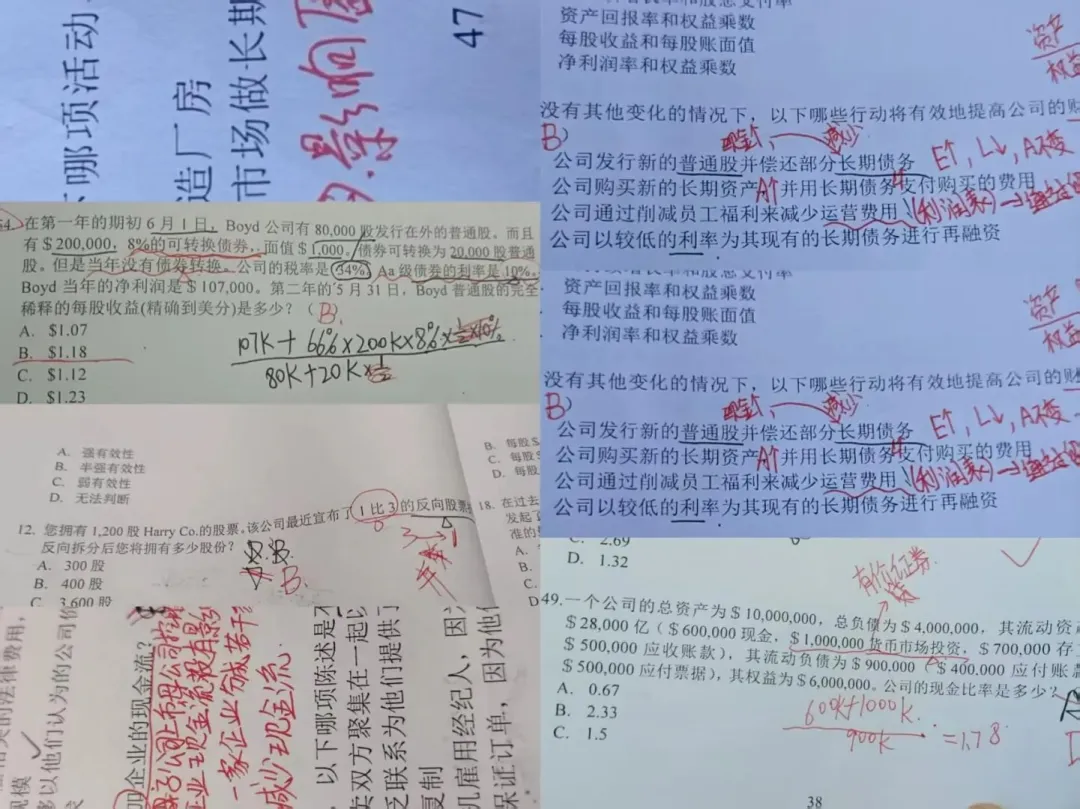 哪项活动
造厂房
市场做长期
影响
47
资产回报率和权益乘数
每股收益和每股账面值
净利润率和权益乘数
资产
权益
没有其他变化的情况下，以下哪些行动将有效地提高公司的
B）
现金个
减少
公司发行新的普通股并偿还部分长期债务
E↑, L↓, A不变
公司购买新的长期资产A↑并用长期债务支付购买的费用
公司通过削减员工福利来减少运营费用(利润表)→
公司以较低的利率为其现有的长期债务进行再融资
54. 在第一年的期初6月1日，Boyd 公司有 80,000 股发行在外的普通股。而且
有＄200,000，8%的可转换债券，面值＄1,000。债券可转换为 20,000 股普通
股。但是当年没有债券转换。公司的税率是 34%，Aa 级债券的利率是 10%。
Boyd 当年的净利润是＄107,000。第二年的 5 月 31 日，Boyd 普通股的完全
稀释的每股收益(精确到美分)是多少？（B.
A. $1.07
B. $1.18
C. $1.12
D. $1.23
107K + 66% × 200K × 8%
80K + 20K
资产回报率和权益乘数
每股收益和每股账面值
净利润率和权益乘数
资产
权益
没有其他变化的情况下，以下哪些行动将有效地提高公司的
B）
现金个
减少
公司发行新的普通股并偿还部分长期债务
E↑, L↓, A不变
公司购买新的长期资产A↑并用长期债务支付购买的费用
公司通过削减员工福利来减少运营费用(利润表)→
公司以较低的利率为其现有的长期债务进行再融资
A. 强有效性
B. 半强有效性
C. 弱有效性
D. 无法判断
12. 您拥有 1,200 股 Harry Co.的股票，该公司最近宣布了 1 比 3 的反向股票
反向拆分后您将拥有多少股份？
B.
A. 300 股
B. 400 股
C. 3,600 股
B. 每股
C. 每股
D. 每股
18. 在过去
发起
准的
A.
B.
C.
D
C. 2.69
D. 1.32
有价证券
49. 一个公司的总资产为＄10,000,000，总负债为＄4,000,000，其流动资
＄28,000 亿（＄600,000 现金，＄1,000,000 货币市场投资，＄700,000 存
＄500,000 应收账款），其流动负债为＄900,000（＄400,000 应付账
＄500,000 应付票据），其权益为＄6,000,000。公司的现金比率是多少？
A. 0.67
B. 2.33
C. 1.5
600K+1000K
900K
=1.78
38
的法律费用，
规模
以他们认为的公司价
企业的现金流？
一家企业分成若干
减少现金流.
以下哪项陈述是不
卖双方聚集在一起
联系为他们提供
复制
机雇用经纪人，因
保证订单，因为他们